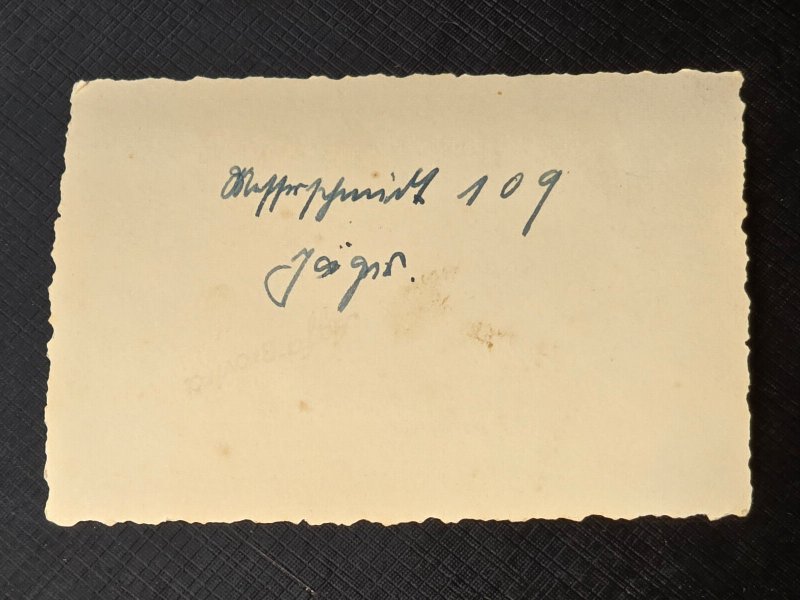 Messerschmidt 109
Jäger.